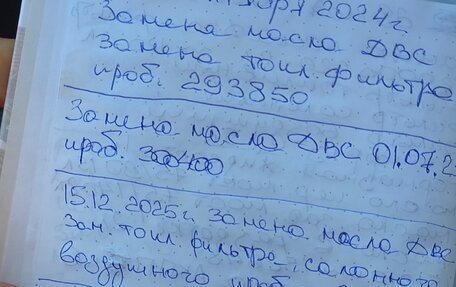 2024г.
Замена масла ДВС
Замена топл. фильтра
проб. 293850
Замена масла ДВС 01.07.2
проб. 300400
15.12.2025г. Замена масла ДВС
Зам. топл. фильтра, салонного
воздушного проб.